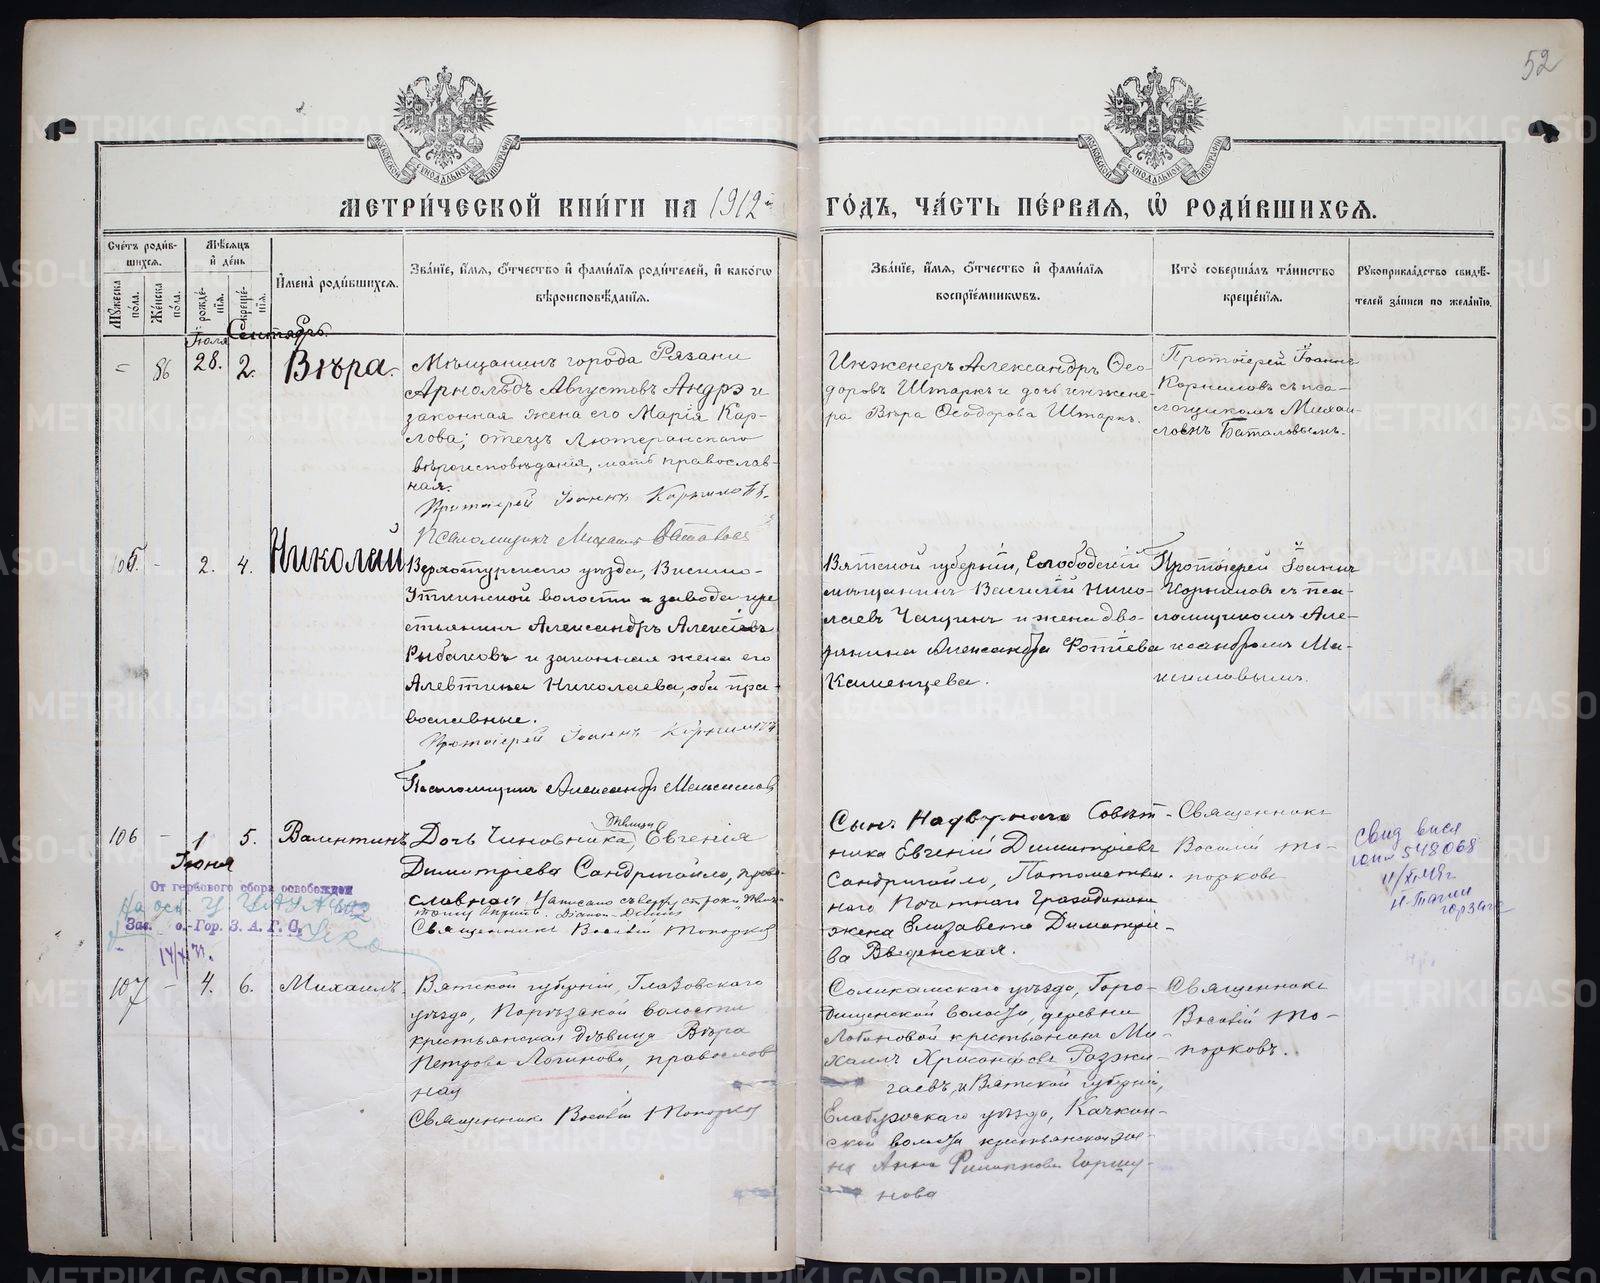 52
МОСКОВСКОЙ СѴНОДАЛЬНОЙ ТИПОГРАФІИ
МОСКОВСКОЙ СѴНОДАЛЬНОЙ ТИПОГРАФІИ
МЕТРИ́ЧЕСКОЙ КНИ́ГИ НА 1912й
ГО́ДЪ, ЧА́СТЬ ПЕ́РВАЯ, Ѡ҆ РОДИ́ВШИХСѦ.
Сче́тъ роди́в-
шихсѧ.
Мѣ́сѧцъ
и҆ де́нь
Мꙋ́жеска по́ла.
Же́нска по́ла.
рожде́-
нїѧ.
креще́-
нїѧ.
И҆мена̀ роди́вшихсѧ.
Зва́нїе, и҆́мѧ, ѻ҆́тчество и҆ фами́лїѧ роди́телей, и҆ како́гѡ
вѣроисповѣ́данїѧ.
Зва́нїе, и҆́мѧ, ѻ҆́тчество и҆ фами́лїѧ
воспрїе́мникѡвъ.
Кто̀ соверша́лъ та́инство
креще́нїѧ.
Рꙋкоприкла́дство свидѣ́-
телей за́писи по жела́нїю.
Іюля Сентябрь.
– 86 28. 2. Вѣра.
Мѣщанинъ города Рязани
Арнольдъ Августовъ Андрэ и
законная жена его Марія Кар-
лова; отецъ лютеранскаго
вѣроисповѣданія, мать православ-
ная.
Протоіерей Іоаннъ Корниловъ.
Псаломщикъ Михаилъ
Инженеръ Александръ Ѳео-
доровъ Штаркъ и дочь инжене-
ра Вѣра Ѳеодорова Штаркъ.
Протоіерей Іоаннъ
Корниловъ съ пса-
ломщикомъ Михаи-
ломъ Баталовымъ.
105. - 2. 4. Николай
Верхотурскаго уѣзда, Висимо-
Уткинской волости и завода кре
стьянинъ Александръ Алексіевъ
Рыбаковъ и законная жена его
Алевтина Николаева, оба пра-
вославные.
Протоіерей Іоаннъ Корниловъ
Псаломщикъ Александръ Максимовъ
Вятской губерніи, Слободскій
мѣщанинъ Василій Нико-
лаевъ Чащинъ и жена дво-
рянина Александра Фотіева
Каменцева.
Протоіерей Іоаннъ
Корниловъ съ пса-
ломщикомъ Але-
ксандромъ Ма-
ксимовымъ.
106 - 1 5. Валентинъ
Іюня
дѣвица
Дочь Чиновника, Евгенія
Димитріева Сандригайло, право
славная. Написано съ верху строки "дѣви-
Священникъ Васілій Топорковъ
Сынъ Надворнаго Совѣт-
ника Евгеній Димитріевъ
Сандригайло, Потомствен-
наго Почетнаго Гражданина
жена Елизавета Димитріе-
ва Введенская.
Священникъ
Васілій То-
порковъ
От гербового сбора освобожден
На осн.
Зав. Гор. З. А. Г. С.
свид
548068
Н-Тагил
горзагс
107 - 4. 6. Михаилъ.
Вятской губерніи, Глазовскаго
уѣзда, Порѣзской волости
крестьянская дѣвица Вѣра
Петрова Логинова, православ
ная
Священникъ Васілій Топорковъ
Соликамскаго уѣзда, Горо-
дищенской волости, деревни
Лобановой крестьянинъ Ми-
хаилъ Хрисанфовъ Разжи-
гаевъ, и Вятской губерніи,
Елабужскаго уѣзда, Качкин-
ской волости крестьянская же-
на Анна Филиппова Горшу-
нова
Священникъ
Васілій То-
порковъ.
METRIKI.GASO-URAL.RU